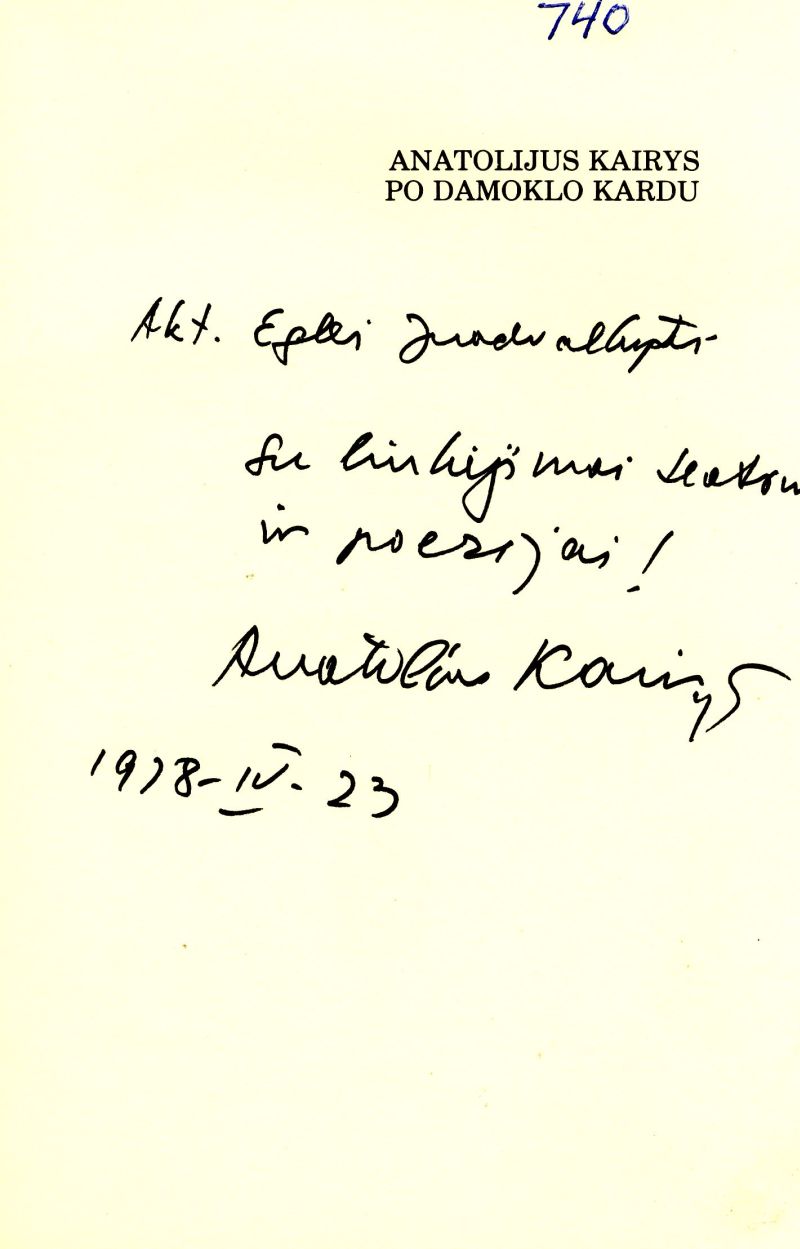 740
ANATOLIJUS KAIRYS
PO DAMOKLO KARDU
Akt. Eglei Juodvalkytei
Su linkėjimai teatru
ir poezijai!
Anatolijus Kairys
1978-IV-23